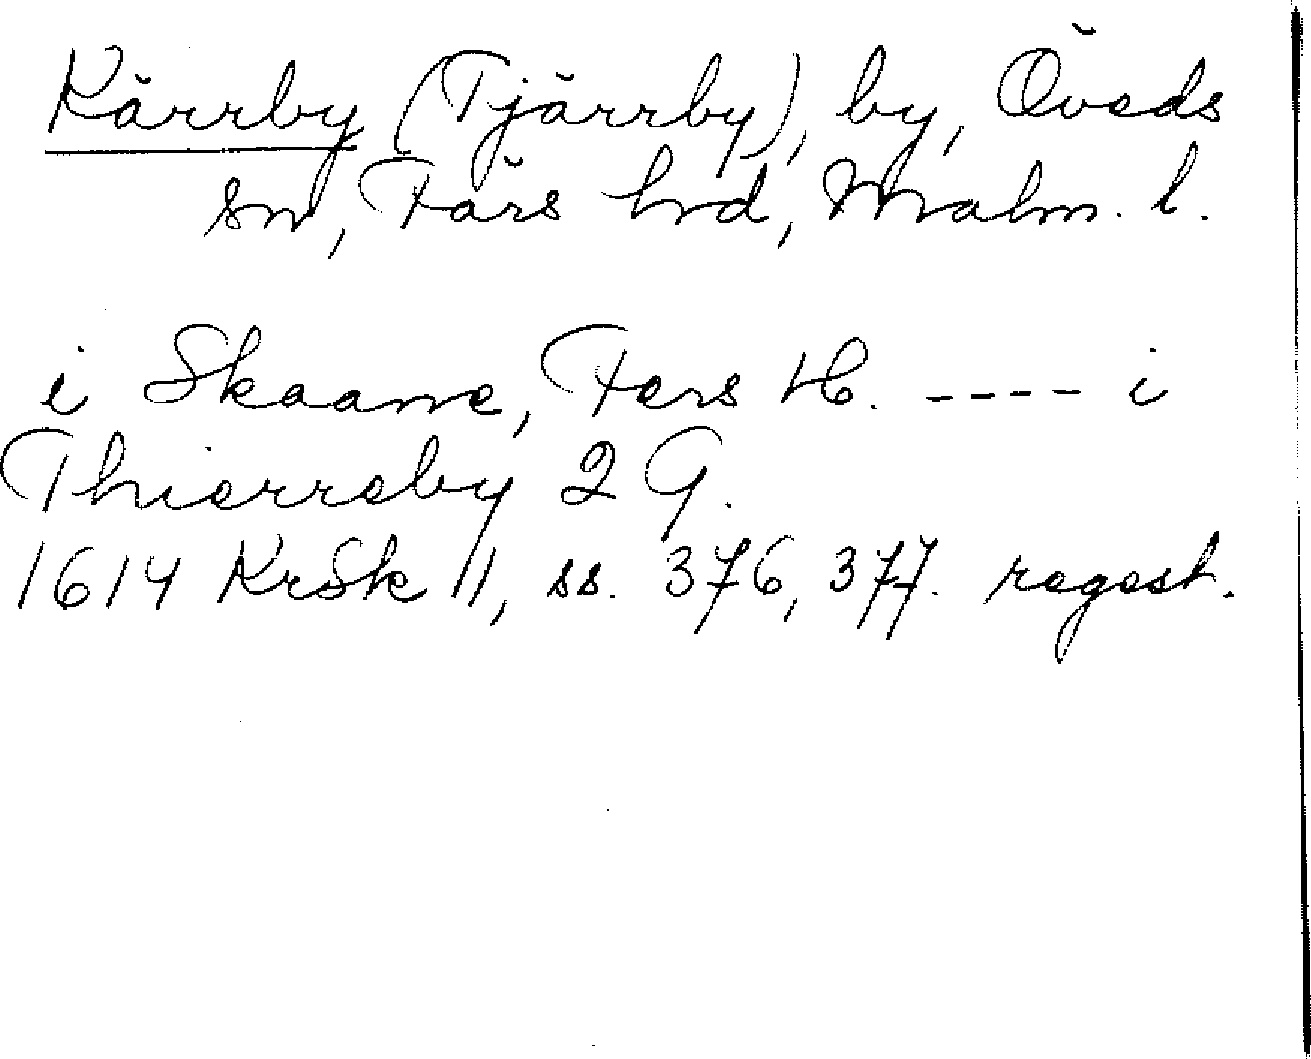 Kärrby (Tjärrby), by, Öveds
sn, Färs hrd, Malm. l.
i Skaane, Fers H. ---- i
Thierreby 2 G.
1614 KrSk II, ss. 376, 377. regest.